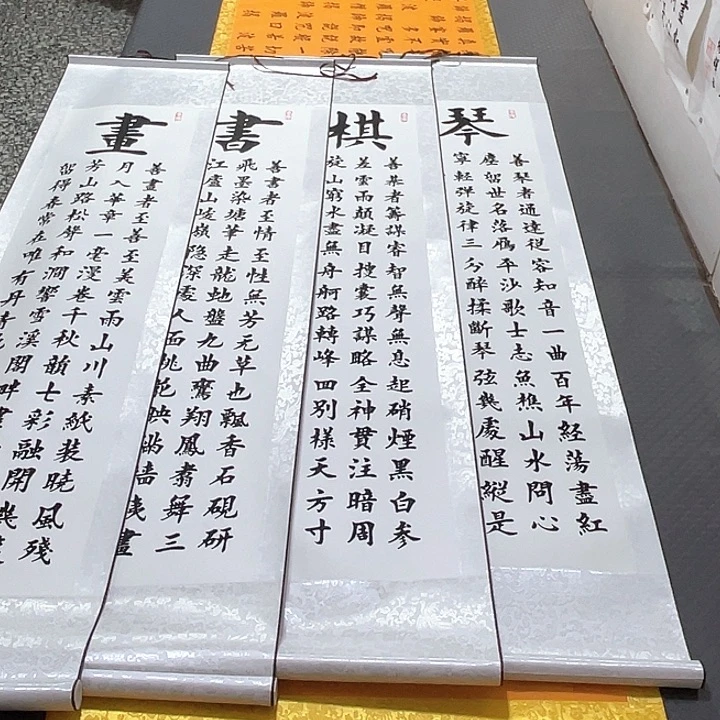 琴
善琴者通達從容知音一曲百年經蕩盡紅
塵留世名落雁平沙歌士志魚樵山水問心
寧輕彈旋律三分醉揉斷琴弦幾處醒縱是
棋
善棊者籌謀睿智無聲無息起硝煙黑白參
差雲雨顛凝目搜囊巧謀略全神貫注暗周
旋山窮水盡無舟舸路轉峰回别樣天方寸
書
善書者至情至性無芳无草也飄香石硯研
飛墨染塘筆走龍虵盤九曲鸞翔鳳翥舞三
江廬山峻嶺隐深處人面桃花映
畫
善畫者至善至美雲雨山川素紙裝曉風殘
月入華章一毫漫卷千秋韻七彩融開
芳山路松聲和澗響雪溪閣畔
留得春常在唯有丹青